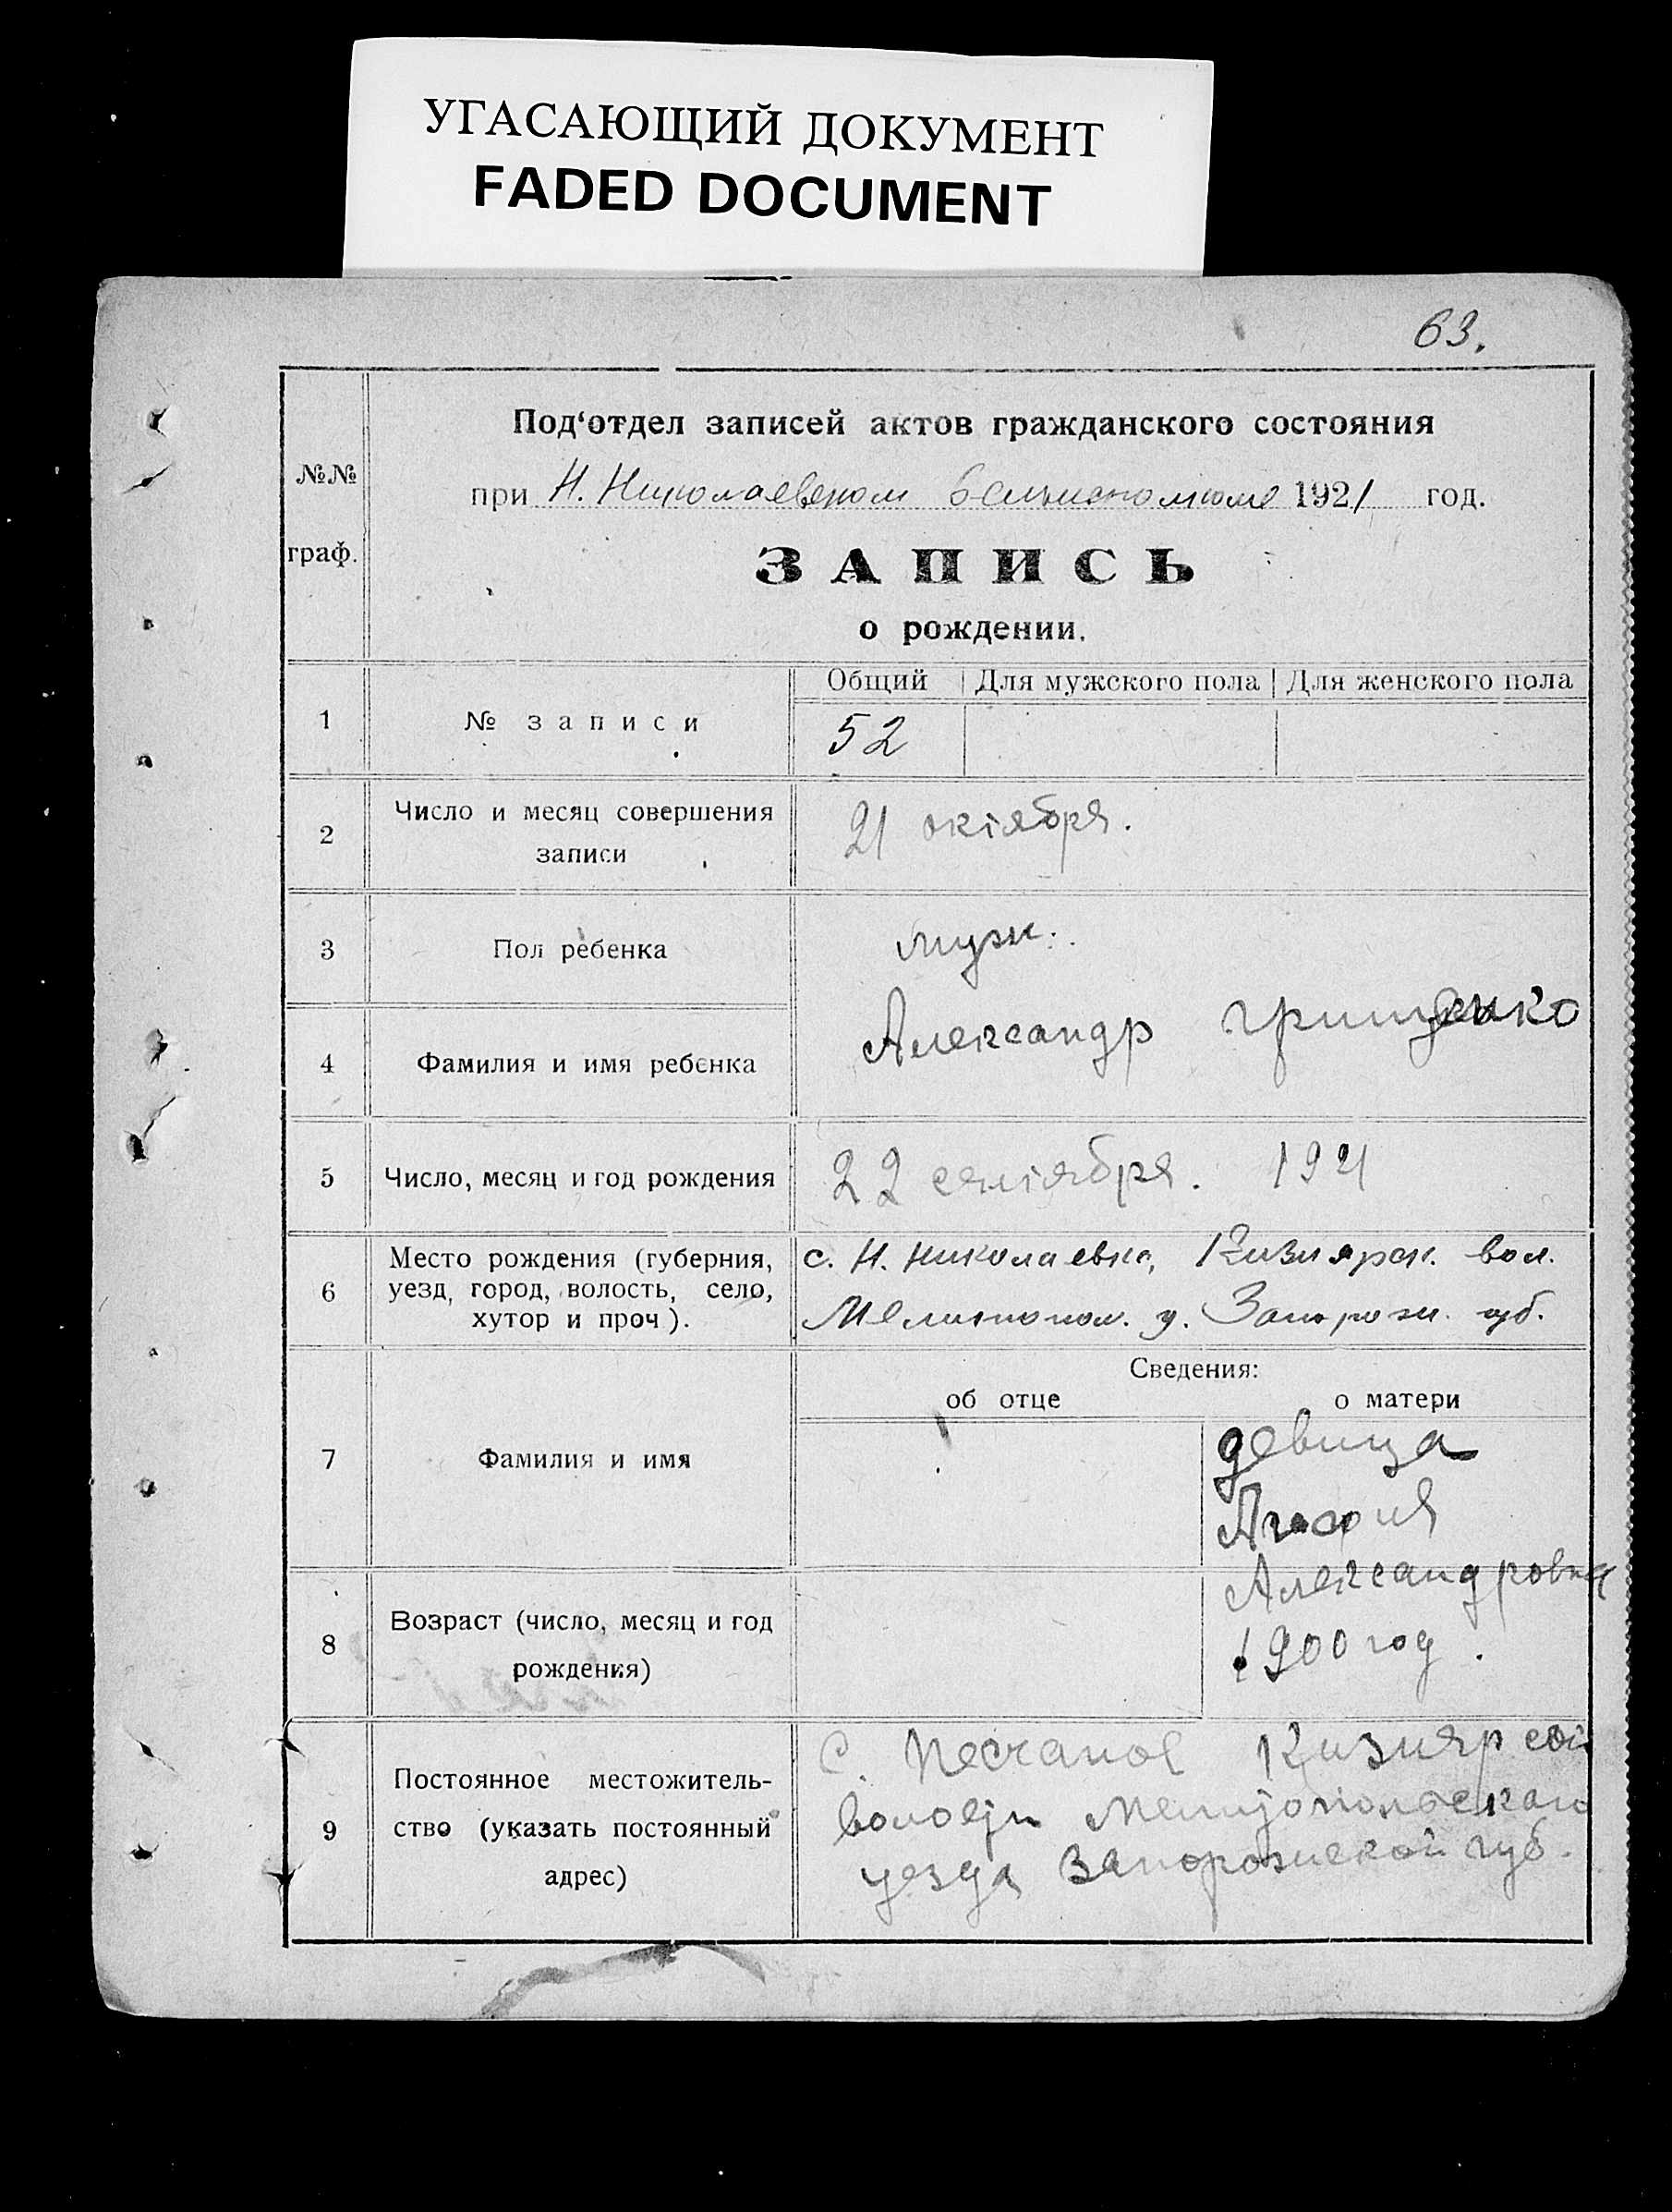 УГАСАЮЩИЙ ДОКУМЕНТ
FADED DOCUMENT
63.
№№
граф.
Под‘отдел записей актов гражданского состояния
при Н. Николаевском Волисполкоме 1921 год.
ЗАПИСЬ
о рождении.
Общий Для мужского пола Для женского пола
1 № записи 52
2 Число и месяц совершения
записи
21 октября.
3 Пол ребенка муж.
4 Фамилия и имя ребенка Александр Грищенко
5 Число, месяц и год рождения 22 сентября. 1921
6 Место рождения (губерния,
уезд, город, волость, село,
хутор и проч).
с. Н. Николаевка, Кизиярск. вол.
Мелитопол. у. Запорож. губ.
Сведения:
об отце о матери
7 Фамилия и имя
девица
Александровна
8 Возраст (число, месяц и год
рождения)
1900 год.
9 Постоянное местожитель-
ство (указать постоянный
адрес)
С. Песчаное Кизиярской
волости Мелитопольского
уезда Запорожской губ.